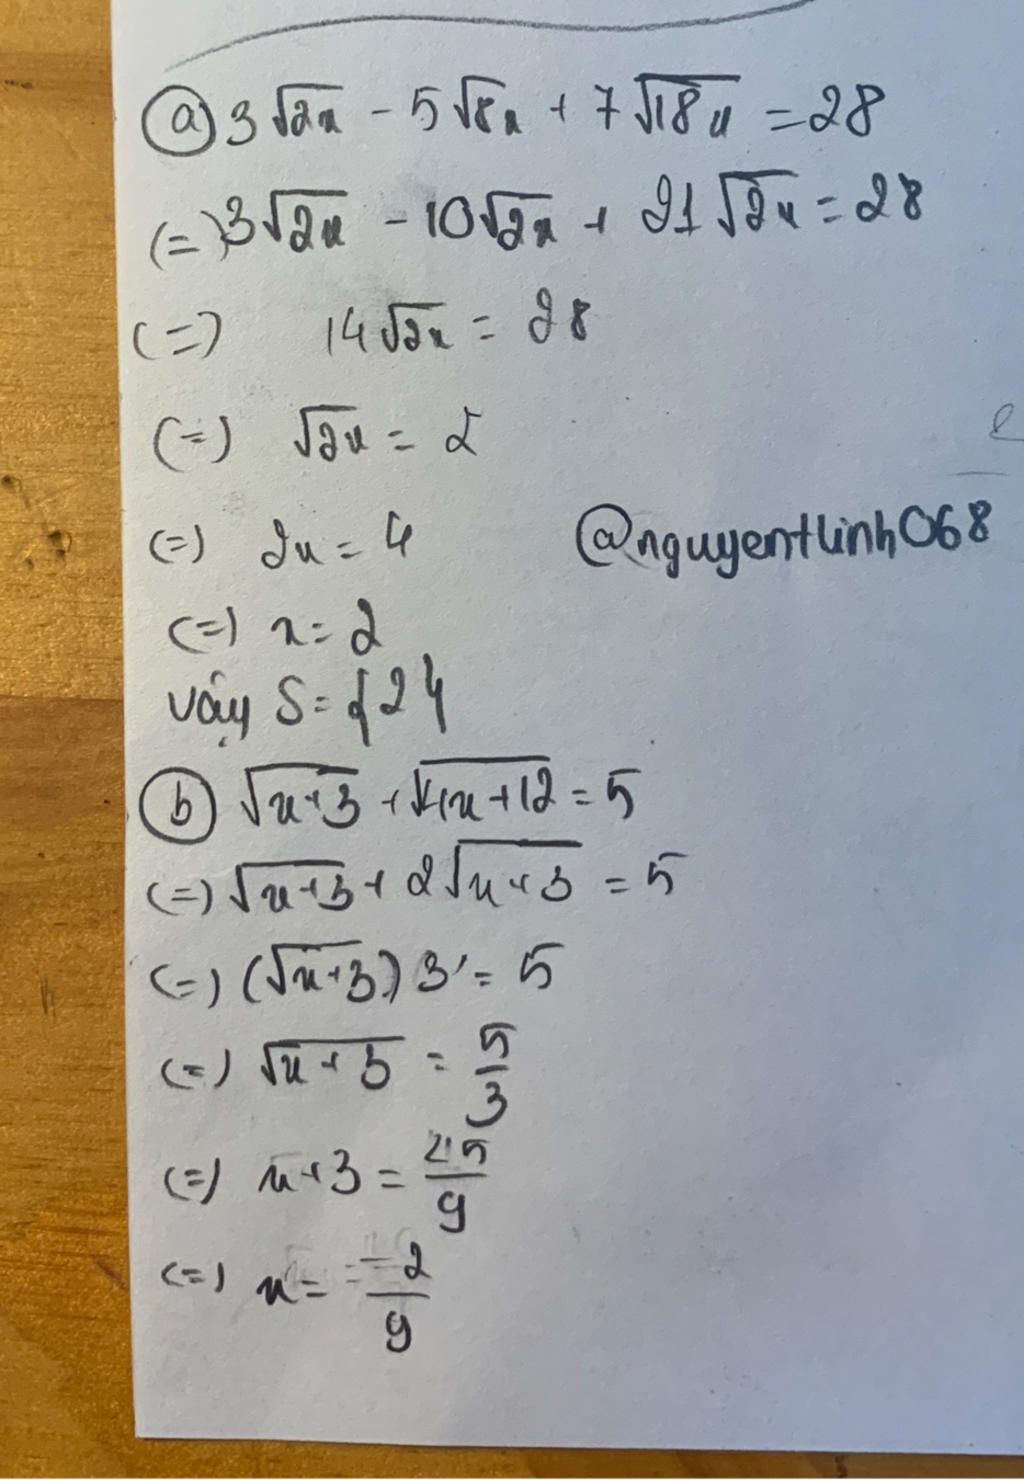 a) 3√2x - 5√8x + 7√18x = 28
(=) 3√2x - 10√2x + 21√2x = 28
(=) 14√2x = 28
(=) √2x = 2
(=) 2x = 4
@nguyentlinh068
(=) x = 2
vậy S = {2}
b) √x+3 + √4x+12 = 5
(=) √x+3 + 2√x+3 = 5
(=) (√x+3) 3 = 5
(=) √x+3 = 5/3
(=) x+3 = 25/9
(=) x = -2/9